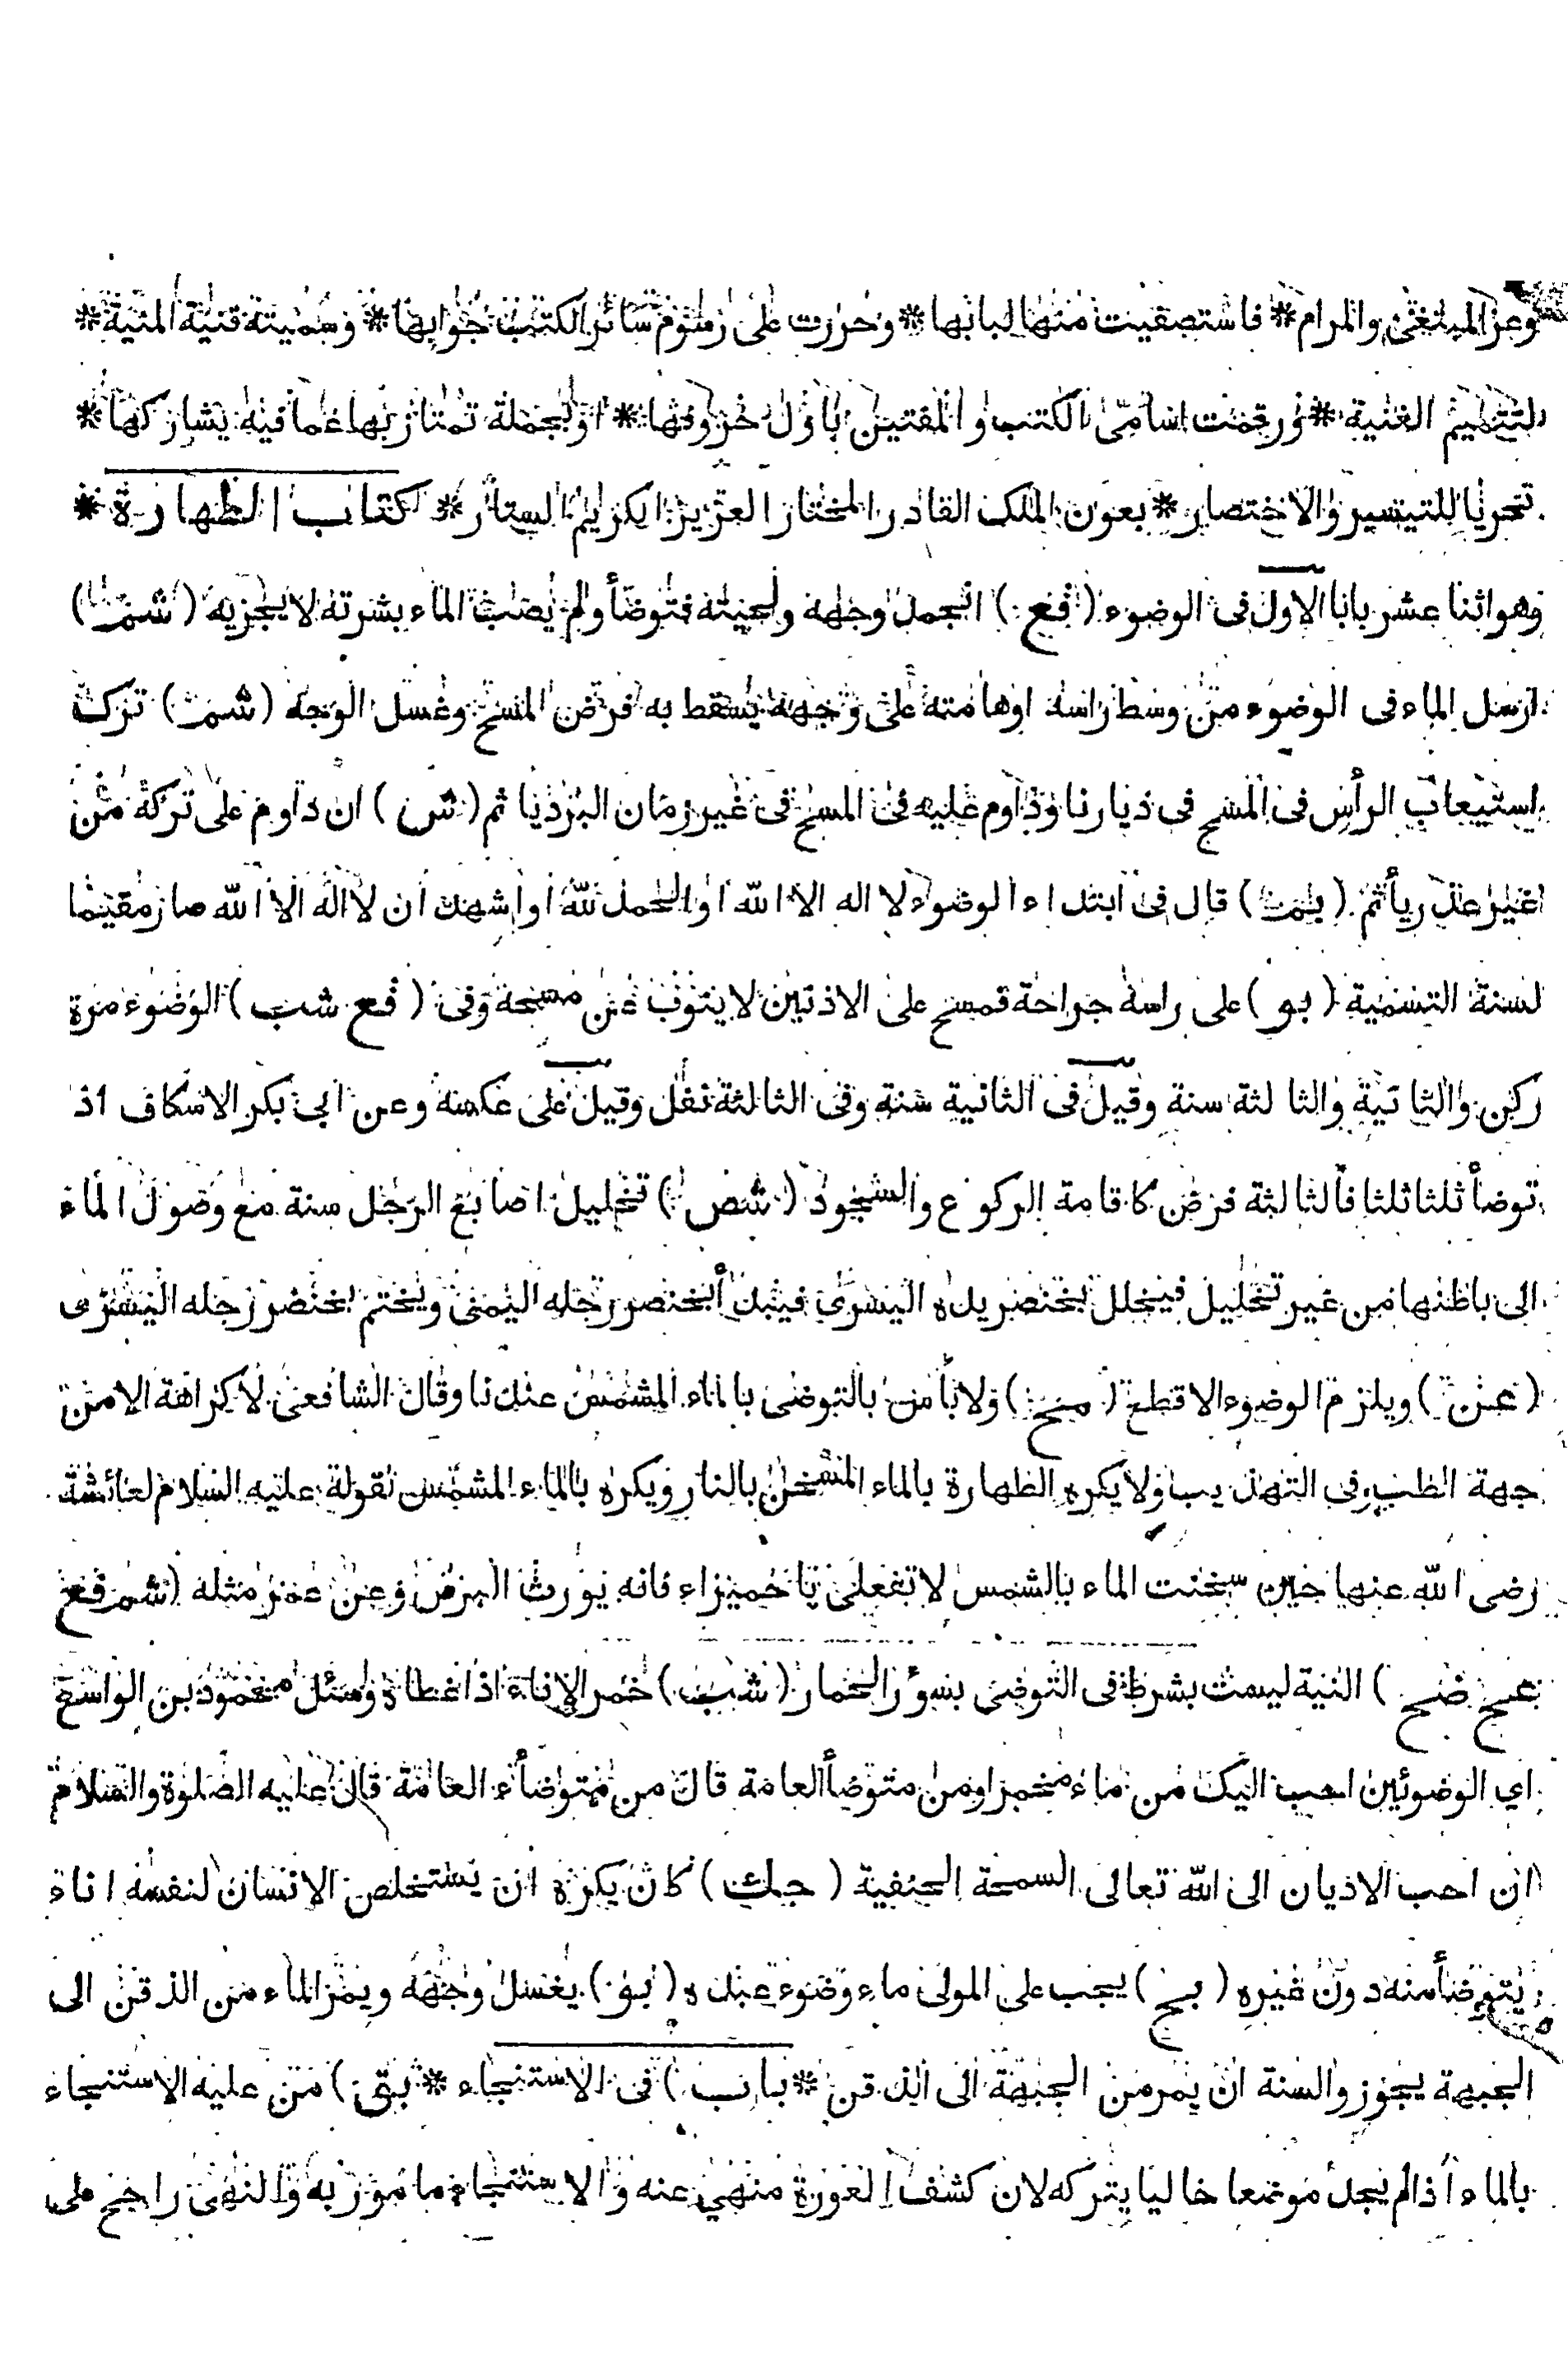 وعز المبتغى والمرام * فاستصفيت منها لبابها * وحررت على رسوم سائر الكتب جوابها * وسميته قنية المنية *
لتتميم الغنية * ورقمت اسامى الكتب والمفتين باول حروفها * او بجملة تمتاز بها عما فيه يشاركها *
تحريا للتيسير والاختصار * بعون الملك القادر المختار العزيز الكريم الستار * كتاب الطهارة *
وهو اثنا عشر بابا الاول فى الوضوء (فع) انجمل وجهه ولحيته فتوضأ ولم يصب الماء بشرته لا يجزيه (شمـ)
ارسل الماء فى الوضوء من وسط راسه او هامته على وجهه يسقط به فرض المسح وغسل الوجه (شمـ) ترك
استيعاب الرأس فى المسح فى ديارنا وداوم عليه فى المسح فى غير زمان البرد يا ثم (شن) ان داوم على تركه من
غير عذر يأثم (يمت) قال فى ابتداء الوضوء لا اله الا الله او الحمد لله او اشهد ان لا اله الا الله صار مقيما
لسنة التسمية (بو) على راسه جراحة قمسح على الاذنين لا ينوب عن مسحه وفى (فع شب) الوضوء مرة
ركن والثانية والثالثة سنة وقيل فى الثانية سنة وفى الثالثة نفل وقيل على عكسه وعن ابى بكر الاسكاف اذا
توضأ ثلثا ثلثا فالثالثة فرض كاقامة الركوع والسجود (شص) تخليل اصابع الرجل سنة مع وصول الماء
الى باطنها من غير تخليل فيخلل بخنصر يده اليسرى فيبدأ بخنصر رجله اليمنى ويختم بخنصر رجله اليسرى
(عن) ويلزم الوضوء الاقطع (منح) ولا بأس بالتوضى بالماء المشمس عندنا وقال الشافعى لا كراهة الا من
جهة الطب وفى التهذيب ولا يكره الطهارة بالماء المسخن بالنار ويكره بالماء المشمس لقوله عليه السلام لعائشة
رضى الله عنها حين سخنت الماء بالشمس لا تفعلى يا حميراء فانه يورث البرص وعن عمر مثله (شمر فع
بخ ضح) النية ليست بشرط فى التوضى بسؤر الحمار (شب) خمر الاناء اذا غطاه وسئل محمود بن الواسع
اي الوضوئين احب اليك من ماء مخمر او من متوضأ العامة قال من متوضأء العامة قال عليه الصلوة والسلام
ان احب الاديان الى الله تعالى السمحة الحنفية (جك) كان يكره ان يستخلص الانسان لنفسه اناء
يتوضأ منه دون غيره (بخ) يجب على المولى ماء وضوء عبده (بو) يغسل وجهه ويمر الماء من الذقن الى
الجبهة يجوز والسنة ان يمر من الجبهة الى الذقن * باب) فى الاستنجاء * بق) من عليه الاستنجاء
بالماء اذا لم يجد موضعا خاليا يتركه لان كشف العورة منهي عنه والاستنجاء مامور به والنهى راجح على